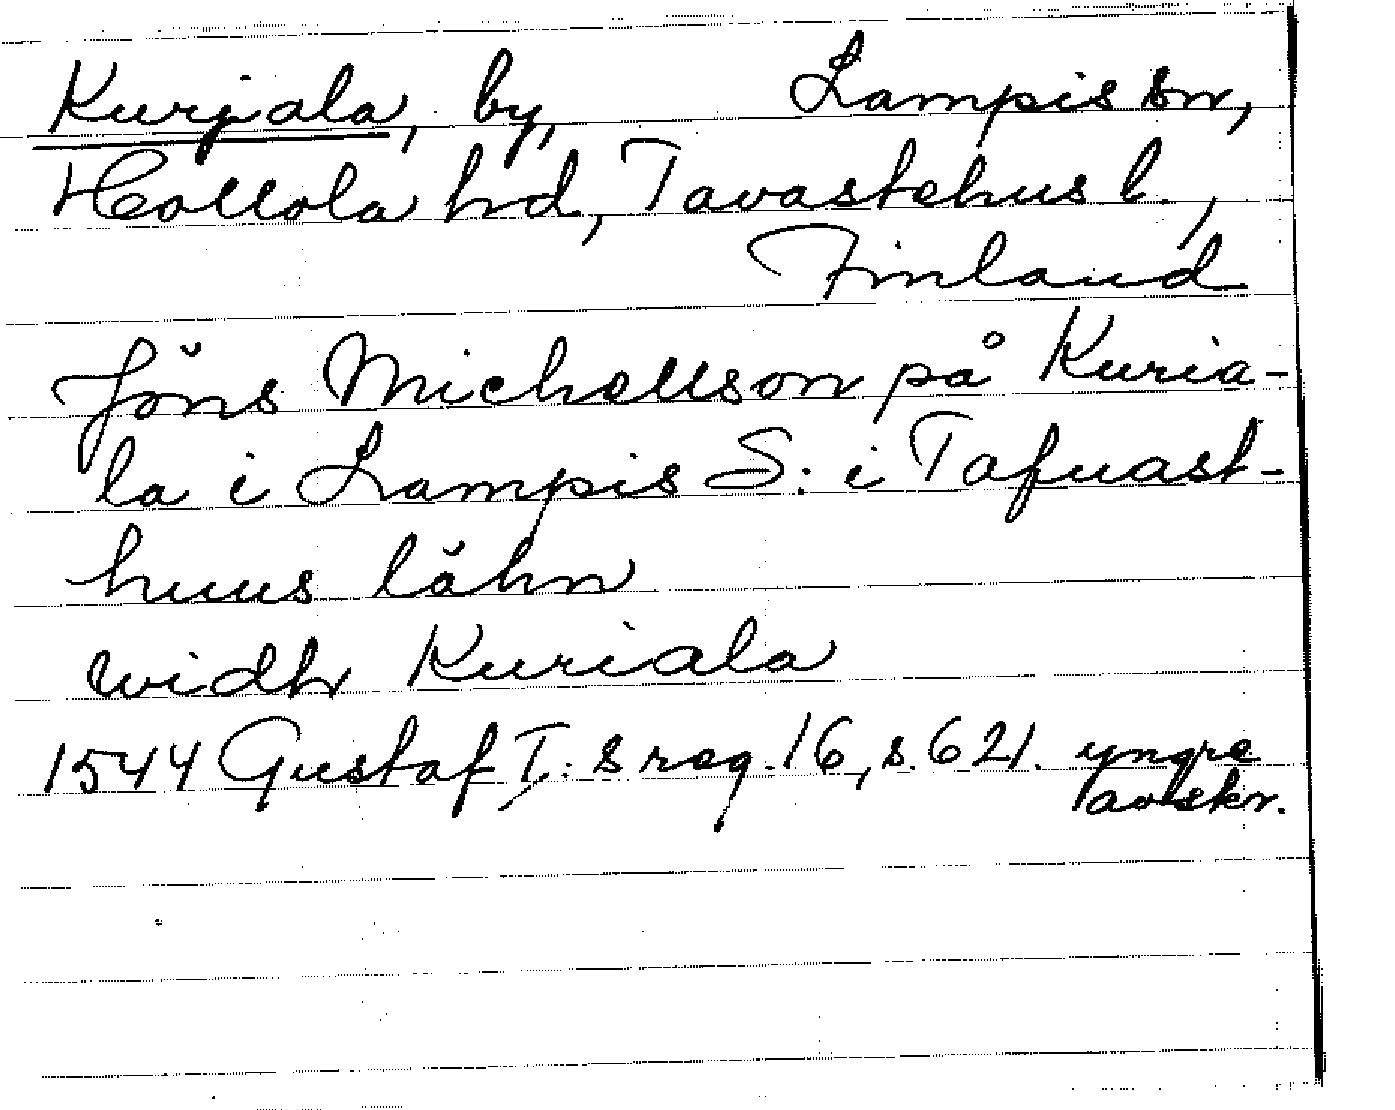 Kurjala, by, Lampis sn,
Hollola hd, Tavastehus l.,
Finland
Jöns Michellson på Kuria-
la i Lampis S: i Tafuast-
huus lähn
widh Kuriala
1544 Gustaf I:s reg. 16, s. 621. yngre
avskr.